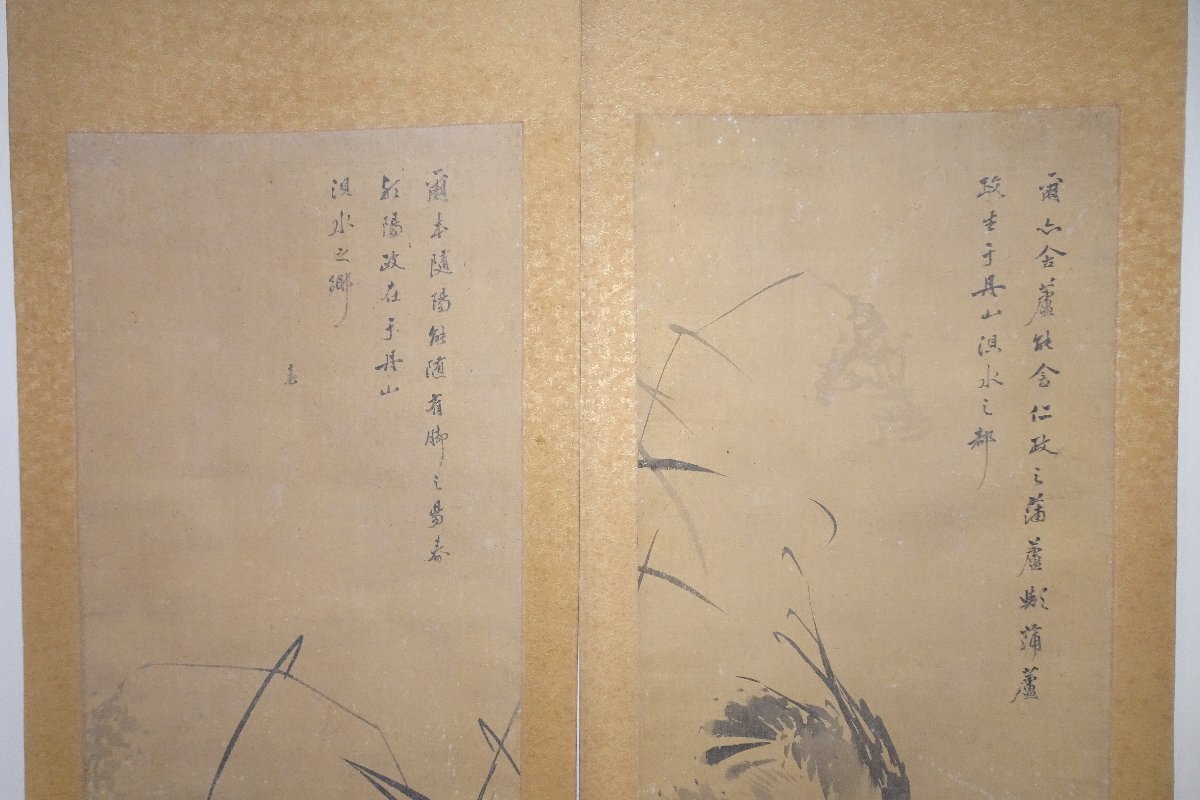 爾亦含蘆能含仁政之蒲蘆歟蒲蘆
政生于丹山浿水之都
爾本隨陽能随有脚之昜春
歟陽政在于丹山
浿水之鄉